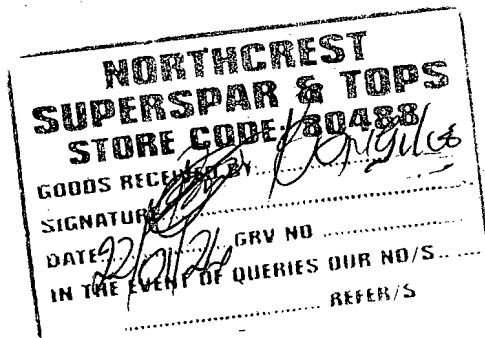 NORTHCREST
SUPERSPAR & TOPS
STORE CODE: 80488
GOODS RECEIVED BY
SIGNATURE
DATE 22/01/24 GRV NO
IN THE EVENT OF QUERIES OUR NO/S
REFER/S